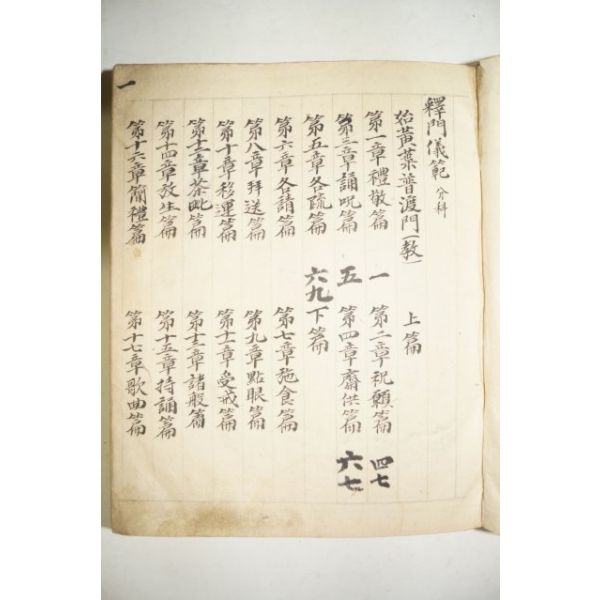 釋門儀範 分科
始黃葉普渡門(敎) 上篇
第一章禮敬篇 一 第二章祝願篇 四七
第三章誦呪篇 五 第四章齋供篇 六七
第五章各疏篇 六九 下篇
第六章各請篇 第七章施食篇
第八章拜送篇 第九章點眼篇
第十章移運篇 第十一章受戒篇
第十二章茶毗篇 第十三章諸般篇
第十四章放生篇 第十五章持誦篇
第十六章簡禮篇 第十七章歌曲篇
一